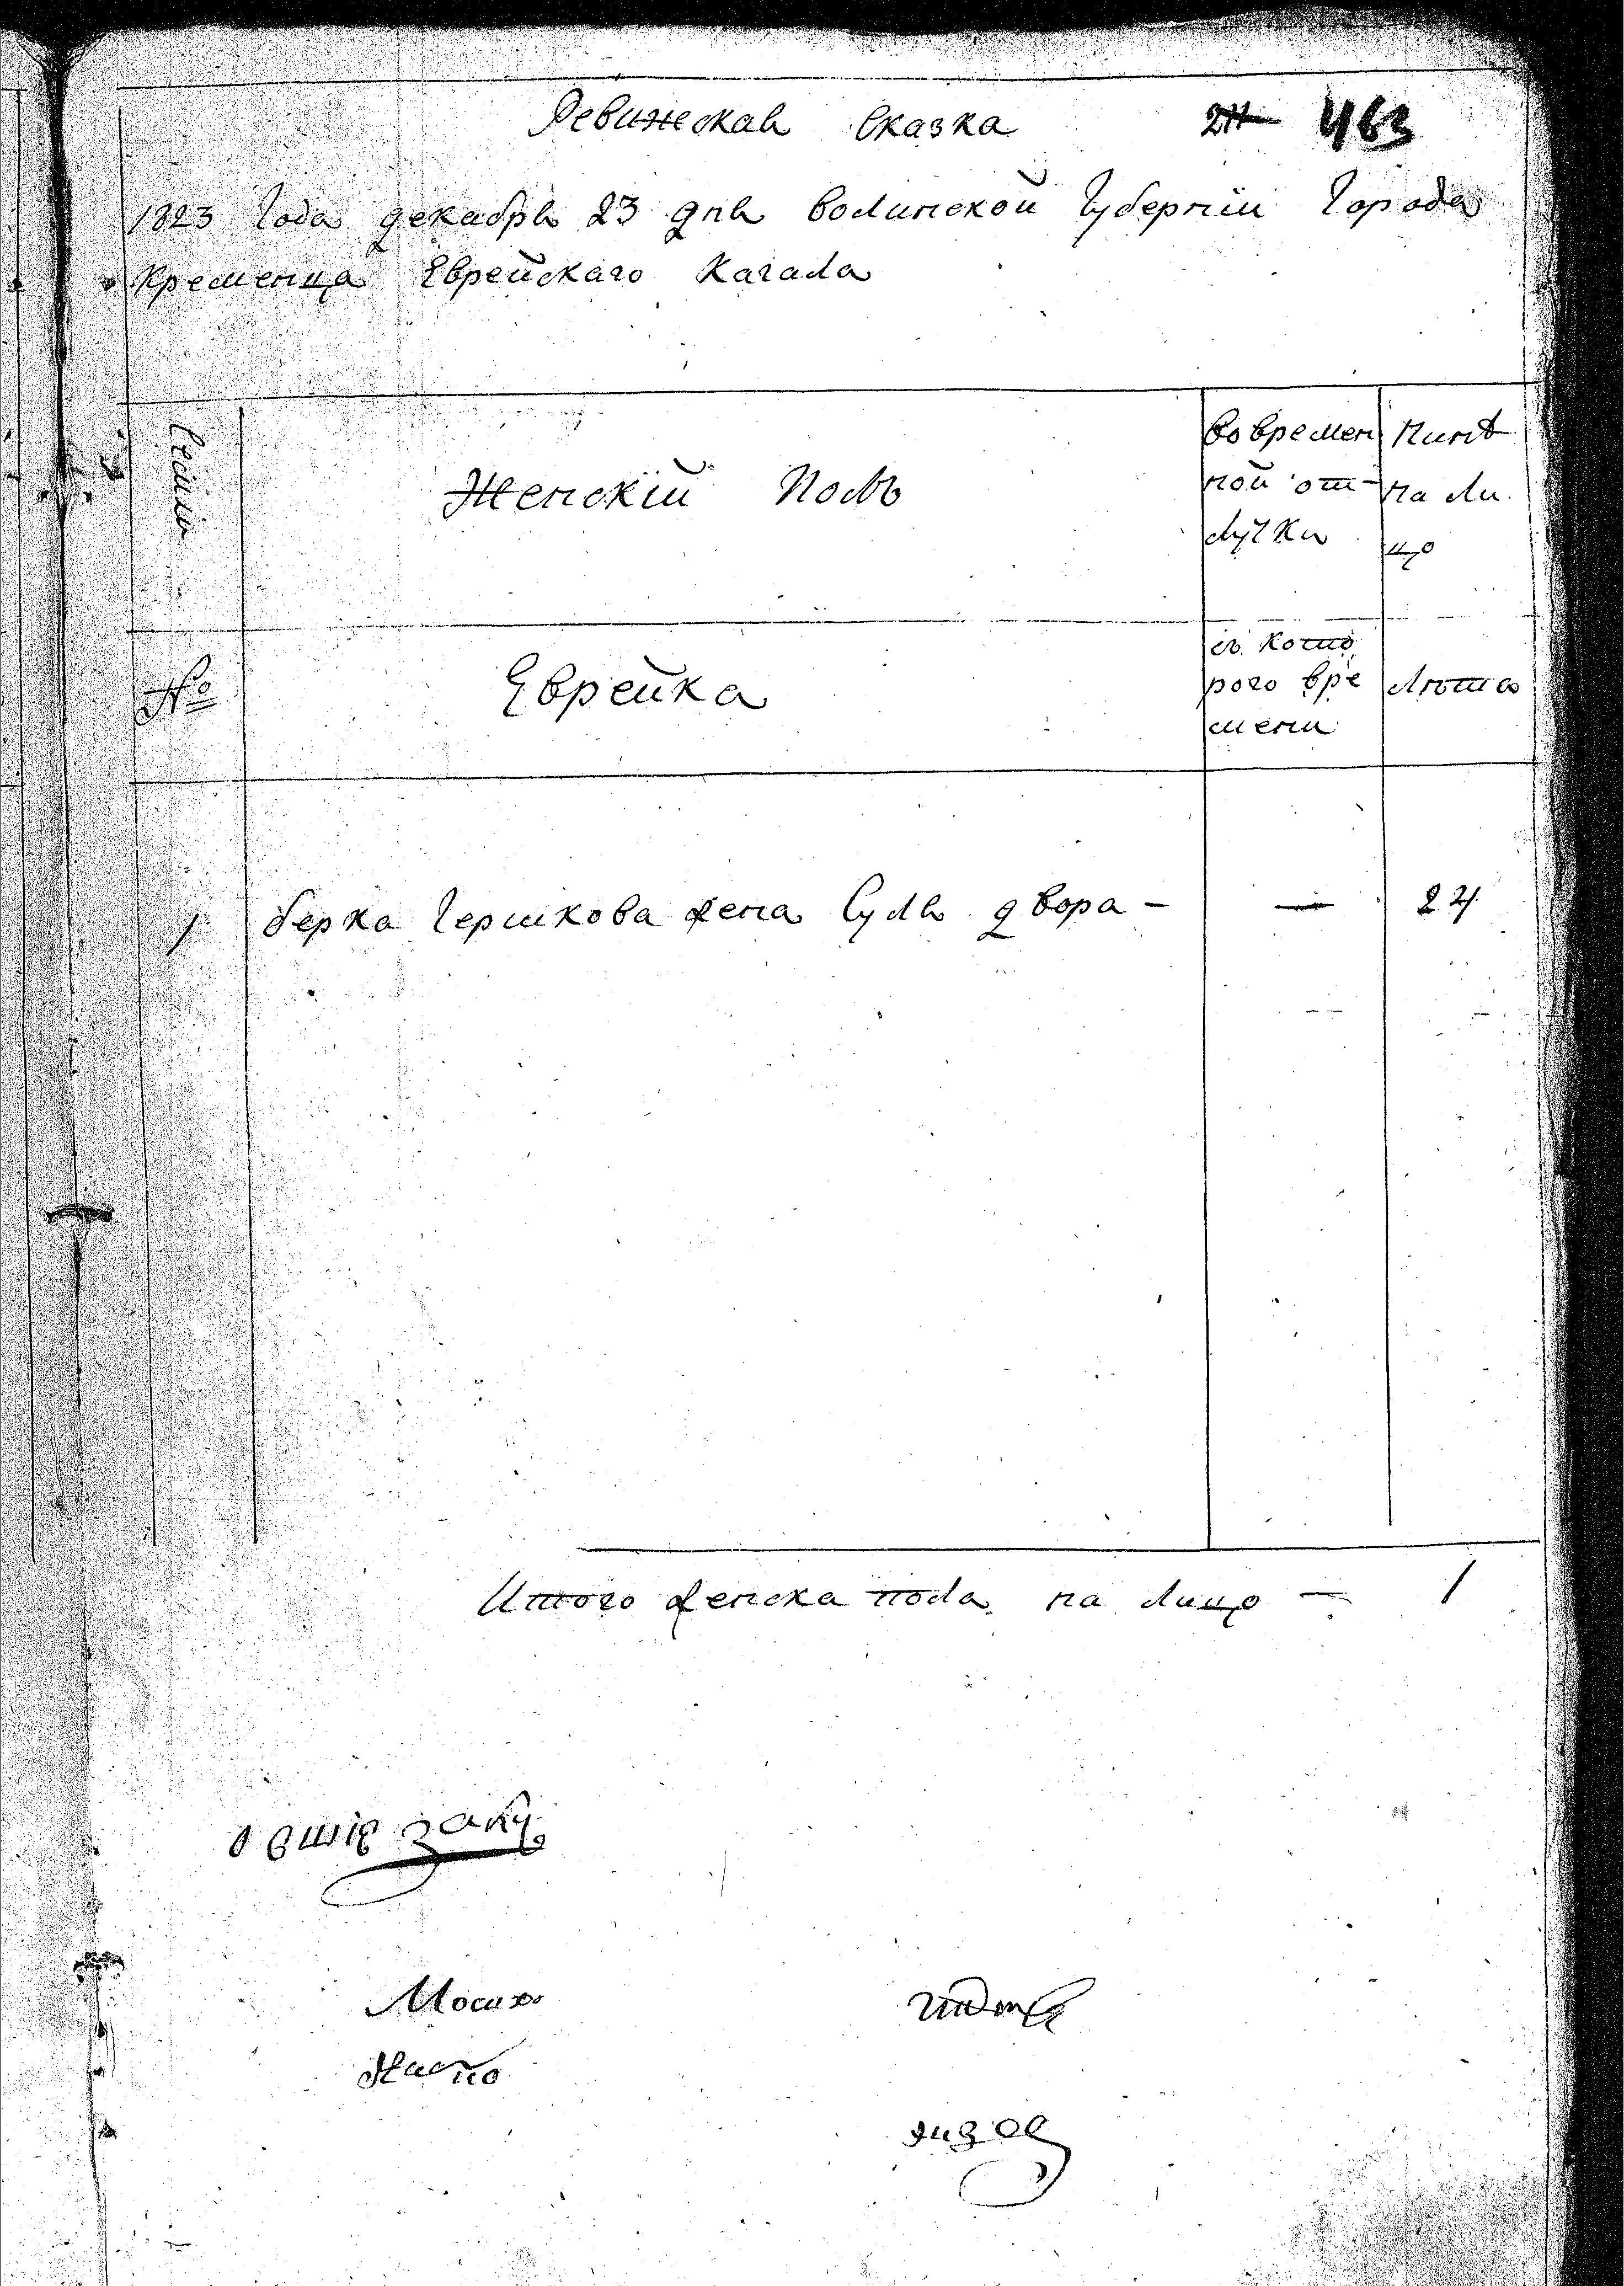 Ревижская Сказка 463
1823 Года декабря 23 дня Волинской Губернїи Города
Кременца Еврейскаго Кагала
Семьи
Женскїй Полъ
Во времен
ной от-
лучки
Нинѣ
на ли
цо
№
Еврейка
съ кото
рого вре
мени
Лѣта
1 Берка Гершкова жена Суля двора - — 24
Итого женска пола на лицо — 1